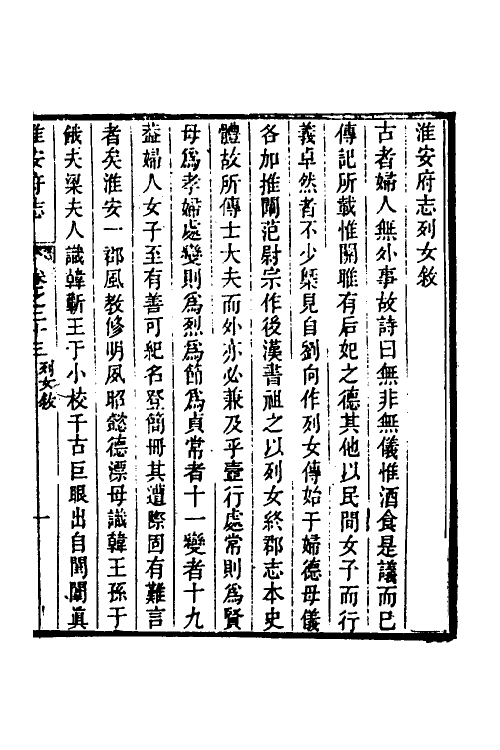 淮安府志列女敘
古者婦人無外事故詩曰無非無儀惟酒食是議而已
傳記所載惟關雎有后妃之德其他以民間女子而行
義卓然者不少槩見自劉向作列女傳始于婦德母儀
各加推闡范尉宗作後漢書祖之以列女終郡志本史
體故所傳士大夫而外亦必兼及乎壼行處常則為賢
母為孝婦處變則為烈為節為貞常者十一變者十九
益婦人女子至有善可紀名登簡冊其遭際固有難言
者矣淮安一郡風教修明夙昭懿德漂母識韓王孫于
餓夫梁夫人識韓蘄王于小校千古巨眼出自閨闥眞
淮安府志
卷之二十三 列女敘
一